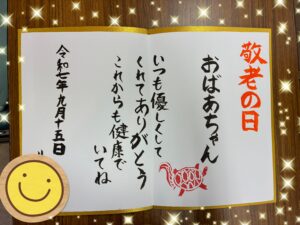 敬老の日
おばあちゃん
いつも優しくして
くれてありがとう
これからも健康で
いてね
令和七年九月十五日